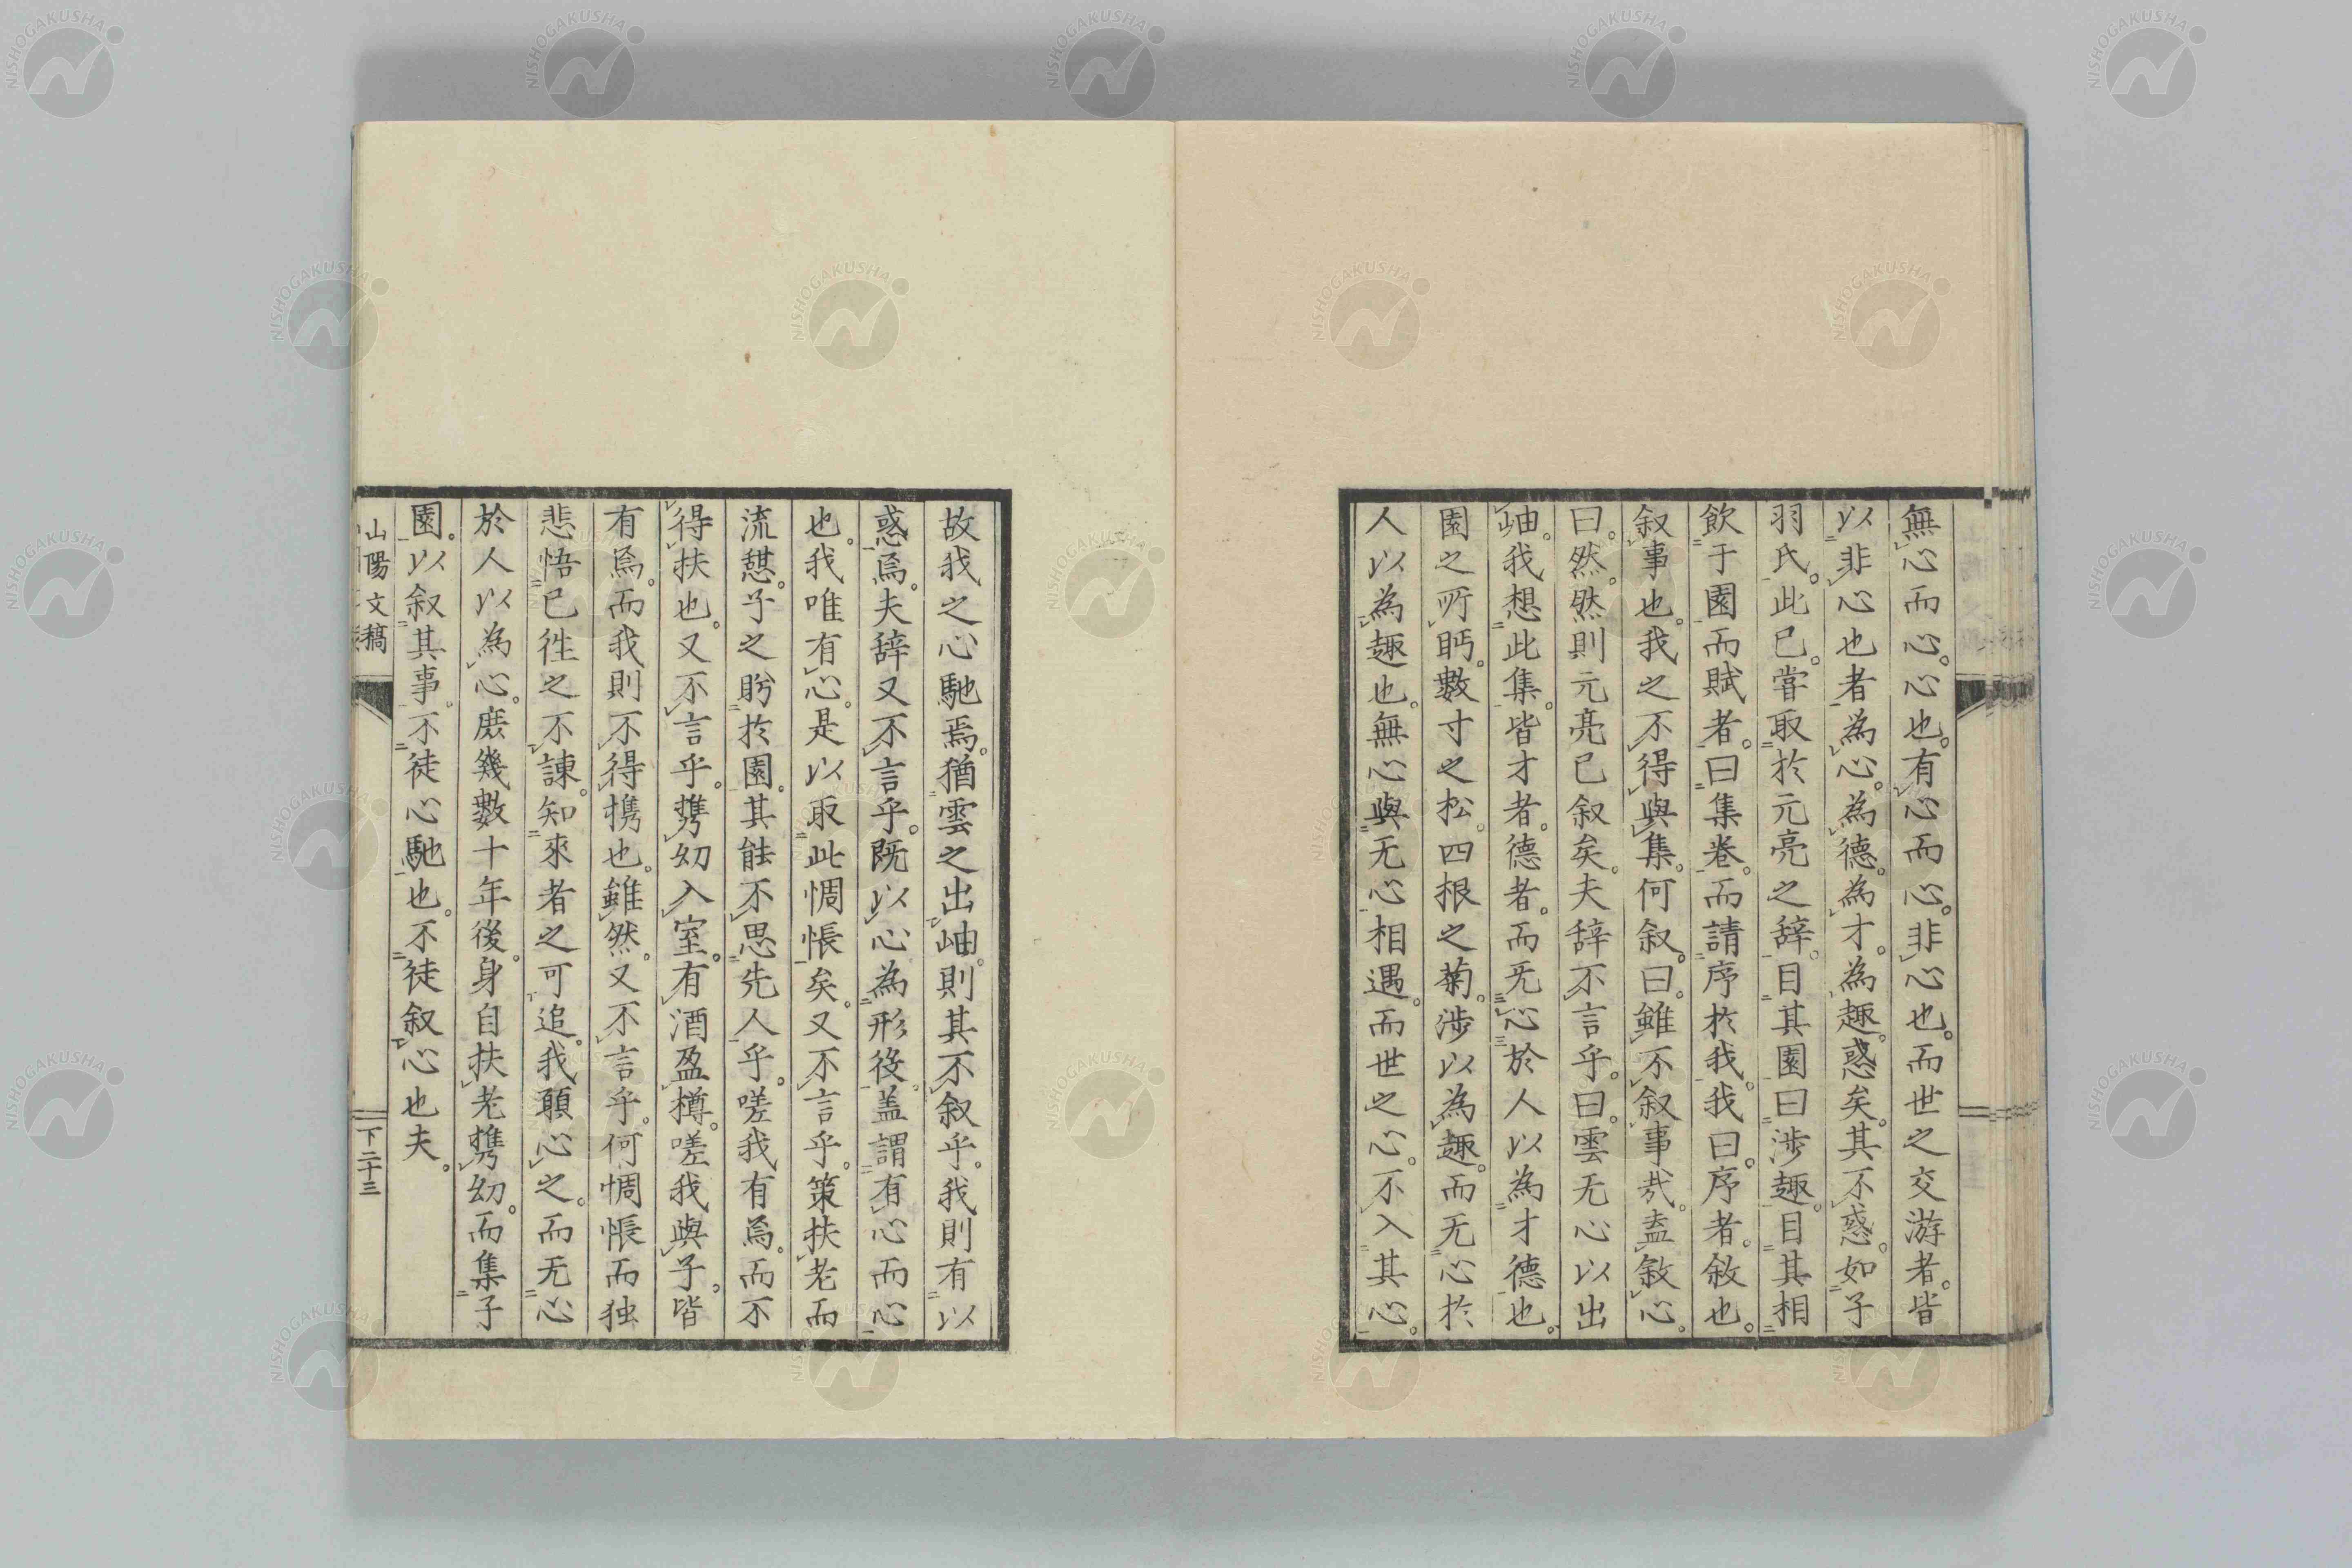 無心而心。心也。有心而心。非心也。而世之交游者。皆
以非心也者為心。為德。為才。為趣。惑矣。其不惑。如子
羽氏。此已。嘗取於元亮之辞。目其園曰渉趣。目其相
飲于園而賦者。曰集卷。而請序於我。我曰。序者。敘也。
叙事也。我之不得與集。何叙。曰。雖不叙事哉。盍敘心。
曰。然。然則元亮已叙矣。夫辞不言乎。曰。雲无心以出
岫。我想此集。皆才者。德者。而无心於人以為才德也。
園之所眄。數寸之松。四根之菊。渉以為趣。而无心於
人以為趣也。無心與无心相遇。而世之心。不入其心。
故我之心馳焉。猶雲之出岫。則其不叙乎。我則有以
惑焉。夫辞又不言乎。既以心為形役。盖謂有心而心
也。我唯有心。是以取此惆悵矣。又不言乎。策扶老而
流憇。子之眄於園。其能不思先人乎。嗟我有焉。而不
得扶也。又不言乎。携幼入室。有酒盈樽。嗟我與子。皆
有焉。而我則不得携也。雖然。又不言乎。何惆悵而独
悲。悟已徃之不諌。知來者之可追。我願心之。而无心
於人以為心。庶幾數十年後。身自扶老携幼。而集子
園。以叙其事。不徒心馳也。不徒叙心也夫。
山陽文稿
下二十三
NISHOGAKUSHA